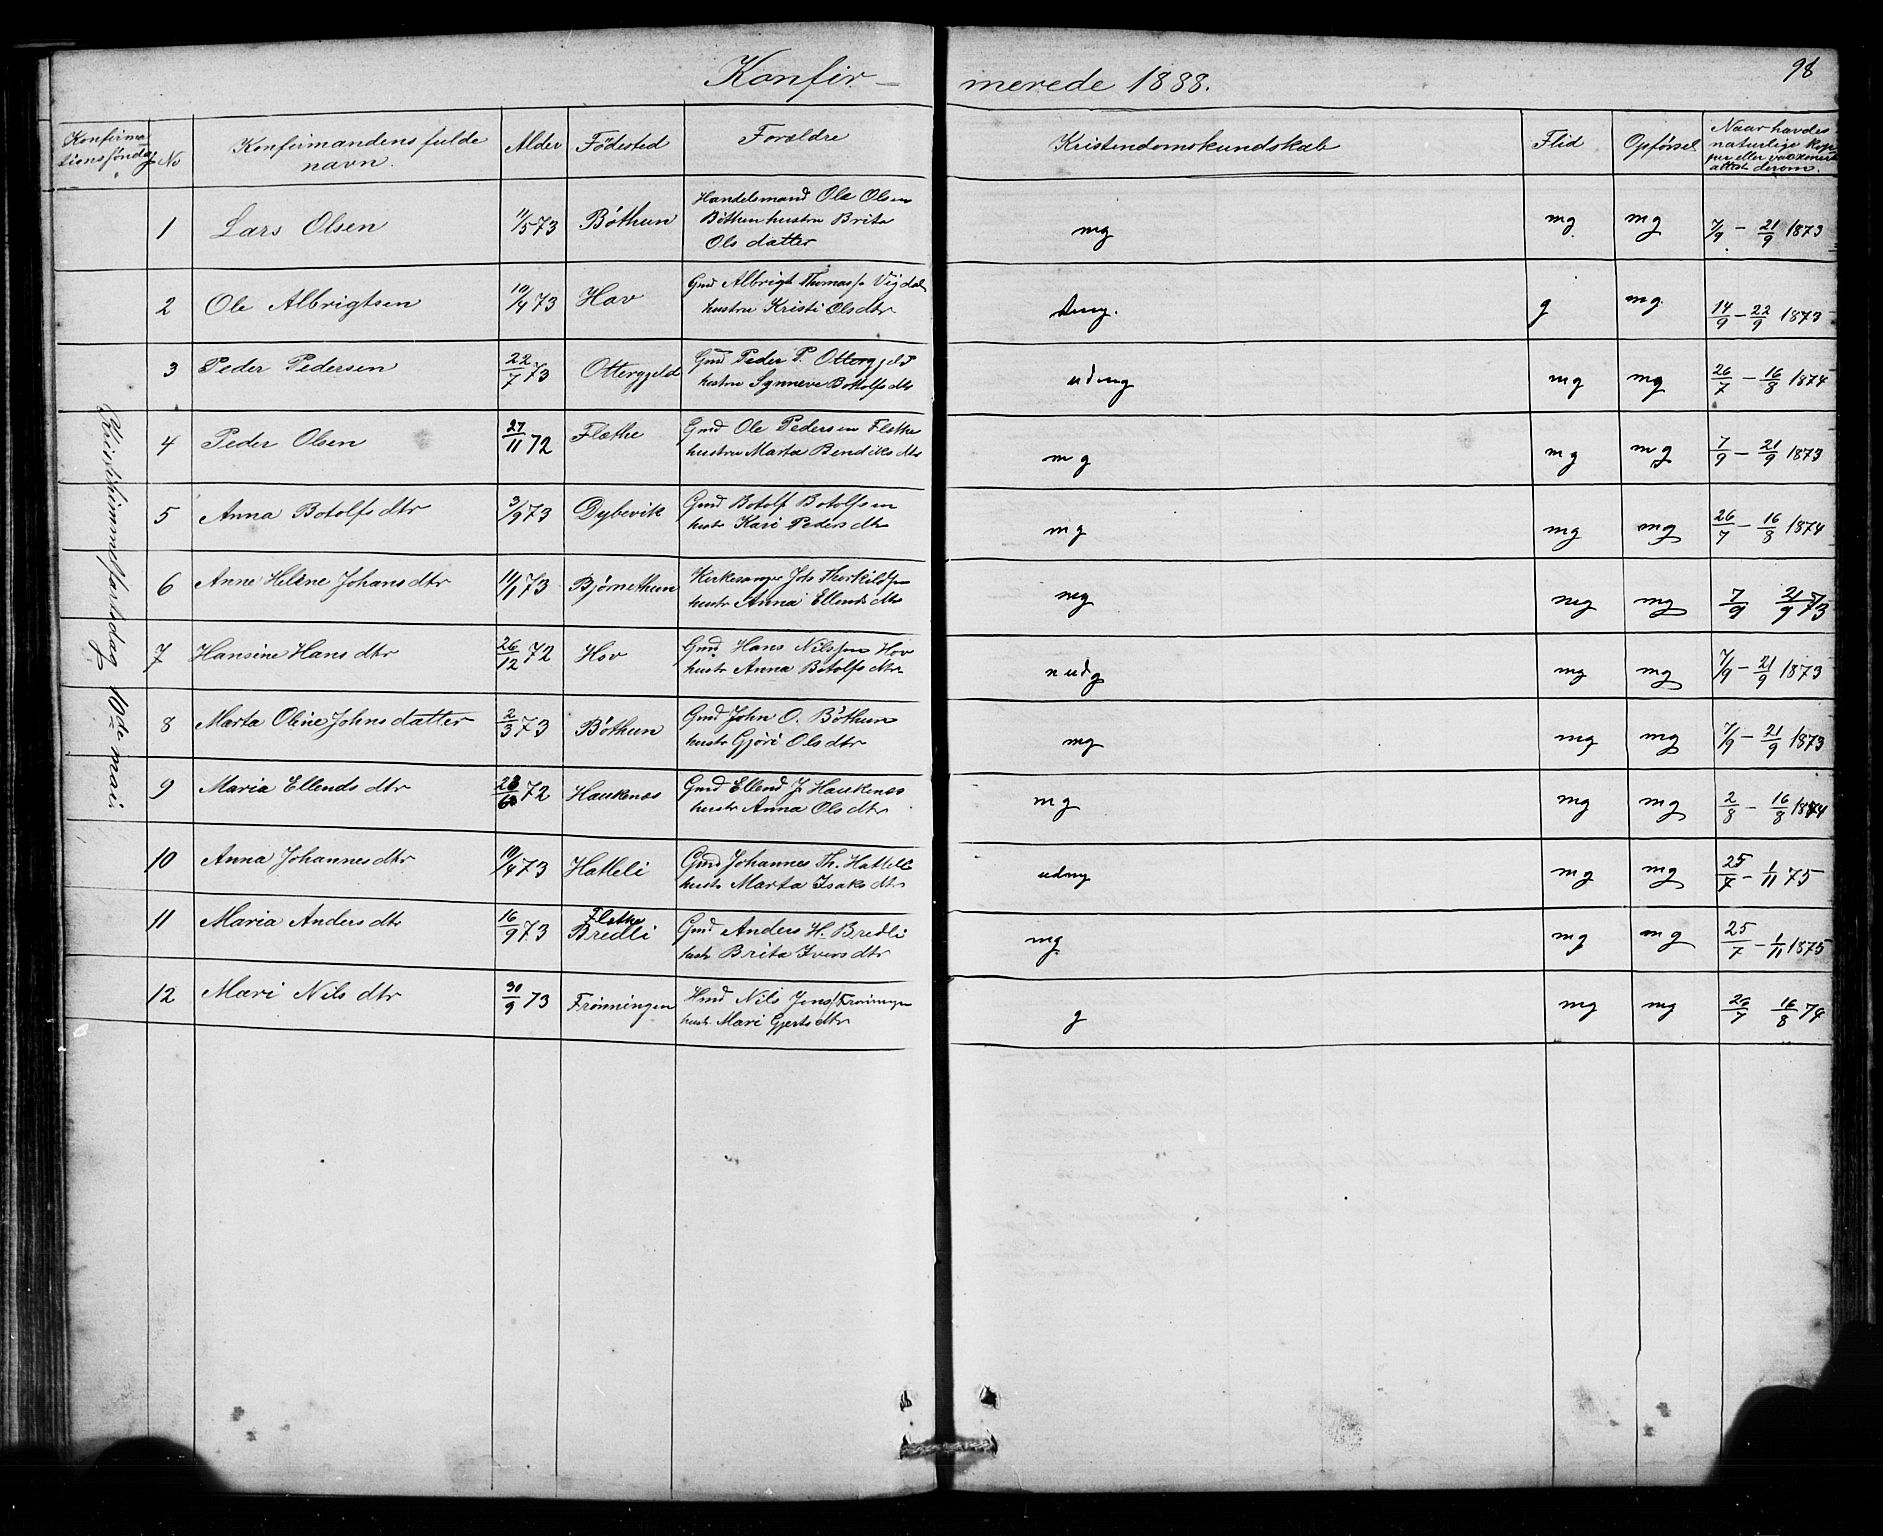 98
Konfir- merede 1888.
Konfirma
tionssøndag No Konfirmandens fulde navn. Alder Födested Forældre Kristendomskundskab Flid Opförsel Naar havdes naturlige Kop
per eller vaccineret attest derom.
Kristihimmelfartsdag 10de mai
1 Lars Olsen 11/5 73 Bøthun Handelsmand Ole Olsen mg mg mg 7/9 - 21/9 1873
Bøthun hustru Brita
Ols datter
2 Ole Albrigtsen 10/4 73 Hov Gmd Albrigt Thomass. Vigdal g mg 14/9 - 22/9 1873
hustru Kristi Olsdtr
3 Peder Pedersen 22/7 73 Ottergjeld Gmd Peder P. Ottergjeld udmg mg mg 26/7 - 16/8 1874
hustru Synneve Botolfs dtr
4 Peder Olsen 27/11 72 Flæthe Gmd Ole Pedersen Flæthe mg mg mg 7/9 - 21/9 1873
hustru Marta Bendiks dtr
5 Anna Botolfs dtr 3/9 73 Dybevik Gmd Botolf Botolfsen mg mg mg 26/7 - 16/8 1874
hustr Kari Peders dtr
6 Anne Heline Johans dtr 73 Bjørnethun Kirkesanger Johs Thorkildsen mg mg mg 7/9 21/9 73
hustr Anna Ellends dtr
7 Hansine Hans dtr 26/12 72 Hov Gmd Hans Nilssen Hov udg mg mg 7/9 - 21/9 1873
hustr Anna Botolfs dtr
8 Marta Oline Johns datter 2/3 73 Bøthun Gmd John O. Bøthun mg mg mg 7/9 - 21/9 1873
hustr Gjöri Ols dtr
9 Maria Ellends dtr 72 Haukenæs Gmd Ellend J. Haukenæs mg mg mg 2/8 - 16/8 1874
hustr Anna Ols dtr
10 Anna Johannes dtr 10/4 73 Hatleli Gmd Johannes Th. Hatleli udmg mg mg 25/7 - 1/11 75
hustr Marta Isaks dtr
11 Maria Anders dtr 16/9 73 Flæthe
Bredli Gmd Anders H. Bredli mg mg mg 25/7 - 1/11 1875
hustr Brita Ivers dtr
12 Mari Nils dtr 30/9 73 Frønningen Hmd Nils Jens. Frønningen g mg mg 26/7 16/8 74
hustr Mari Gjerts dtr